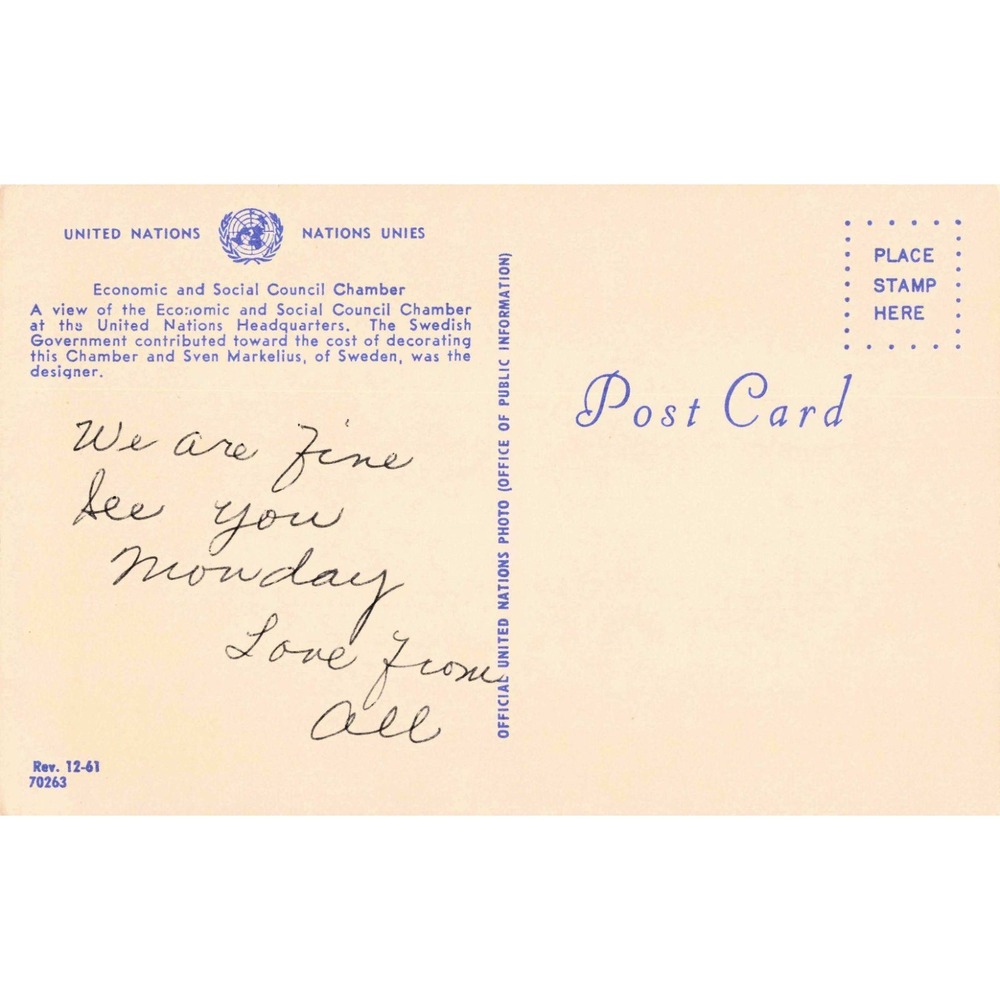 UNITED NATIONS NATIONS UNIES
Economic and Social Council Chamber
A view of the Economic and Social Council Chamber
at the United Nations Headquarters. The Swedish
Government contributed toward the cost of decorating
this Chamber and Sven Markelius, of Sweden, was the
designer.
We are fine
See you
Monday
Love from
all
Rev. 12-61
70263
OFFICIAL UNITED NATIONS PHOTO (OFFICE OF PUBLIC INFORMATION)
PLACE
STAMP
HERE
Post Card